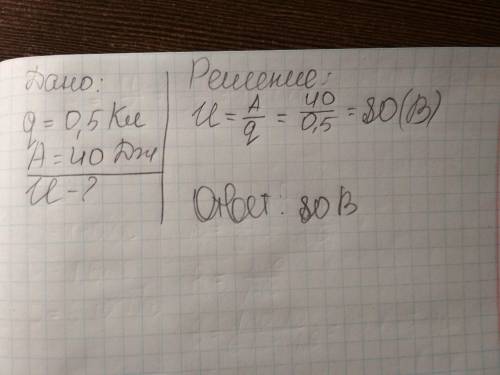 Дано:
q = 0,5 Кл
A = 40 Дж
U - ?
Решение:
U = A/q = 40/0,5 = 80 (В)
Ответ: 80 В